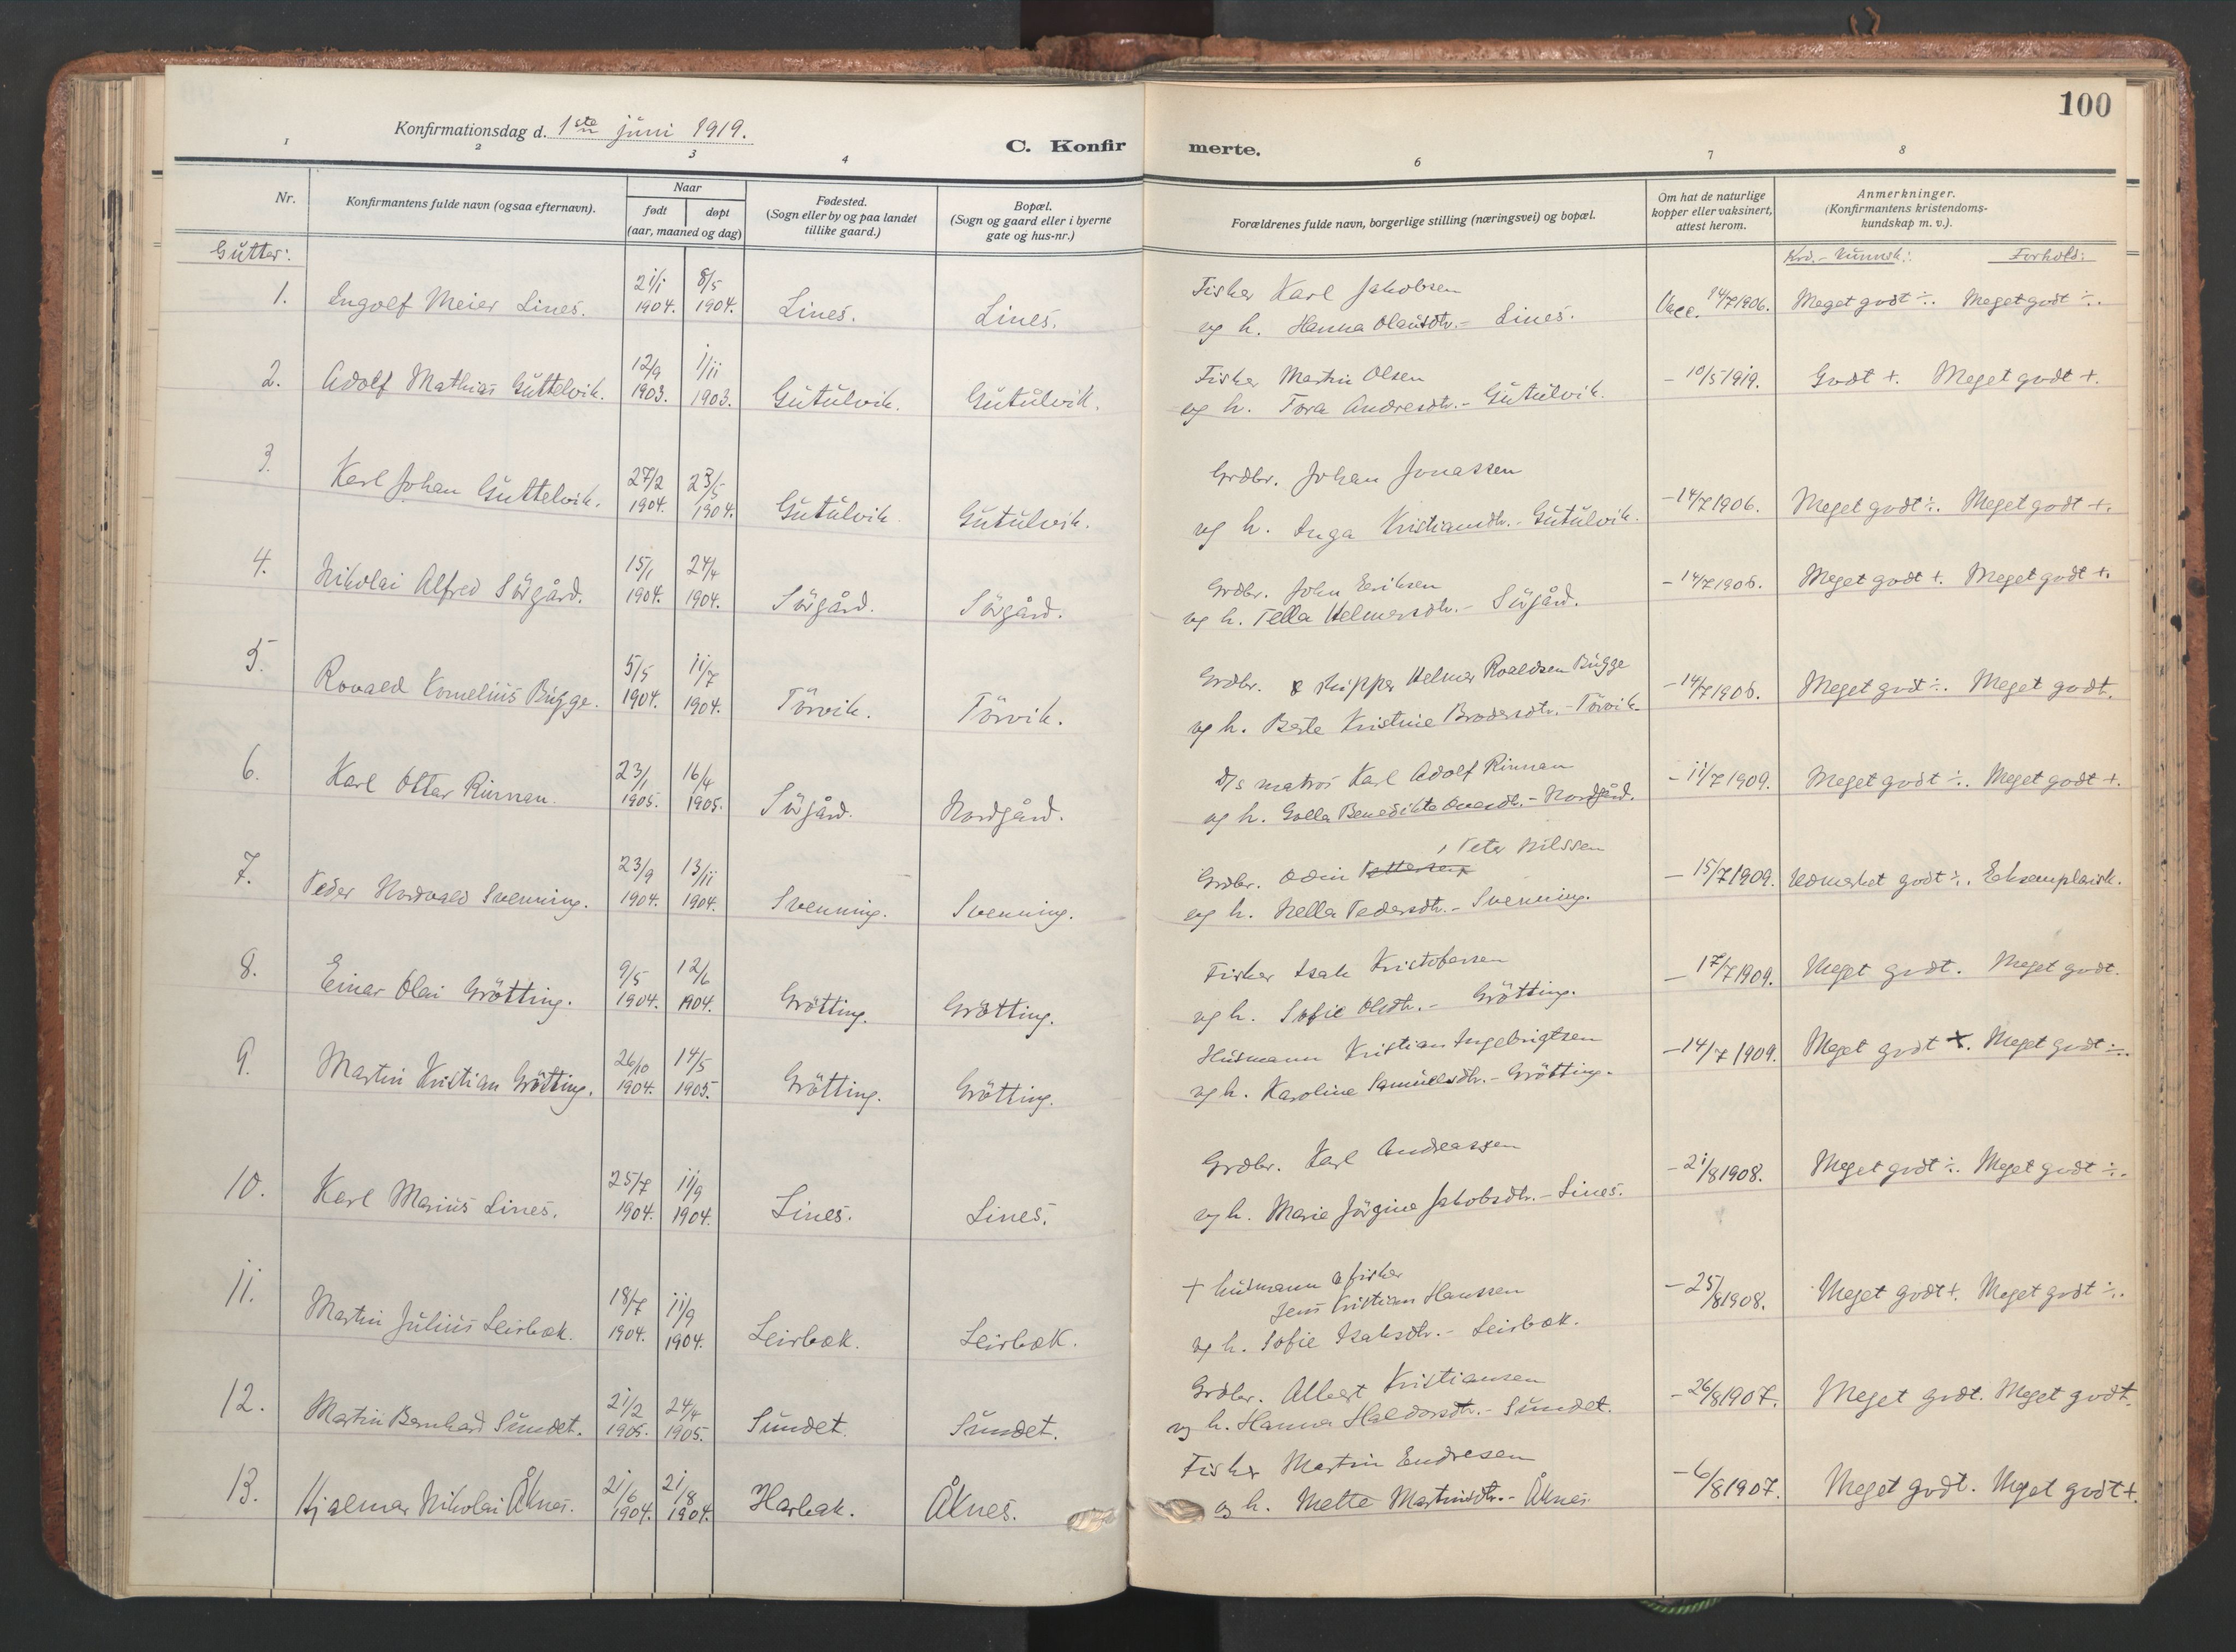 100
Konfirmationsdag d. 1ste juni 1919.
C. Konfirmerte.
1 2 3 4 6 7 8
Nr. Konfirmantens fulde navn (ogsaa efternavn). Naar født døpt (aar, maaned og dag) Fødested. (Sogn eller by og paa landet tillike gaard.) Bopæl. (Sogn og gaard eller i byerne gate og hus-nr.) Forældrenes fulde navn, borgerlige stilling (næringsvei) og bopæl. Om hat de naturlige kopper eller vaksinert, attest herom. Anmerkninger. (Konfirmantens kristendomskundskap m. v.).
Gutter: Krd.-kunnsk.: Forhold:
1. Ingolf Meier Lines. 21/1 1904. 8/5 1904. Lines. Lines. Fisker Karl Jakobsen
og h. Hanna Olausdtr. - Lines. Vacc. 14/7 1906. Meget godt ÷. Meget godt ÷.
2. Adolf Mathias Guttelvik. 12/9 1903. 1/11 1903. Gutulvik. Gutulvik. Fisker Martin Olsen
og h. Tora Andresdtr. - Gutulvik. - 10/5 1919. Godt +. Meget godt +.
3. Karl Johan Guttelvik. 27/2 1904. 23/5 1904. Gutulvik. Gutulvik. Grdbr. Johan Jonassen
og h. Inga Kristiansdtr. - Gutulvik. - 14/7 1906. Meget godt ÷. Meget godt +.
4. Nikolai Alfred Sörgård. 15/1 1904. 24/4 1904. Sörgård. Sörgård. Grdbr. John Eriksen
og h. Tella Helmersdtr. - Sörgård. - 14/7 1906. Meget godt +. Meget godt +.
5. Rovald Kornelius Bugge. 5/5 1904. 11/7 1904. Törvik. Törvik. Grdbr. & skipper Helmer Roaldsen Bugge
og h. Berte Kristine Brodersdtr. - Törvik. - 14/7 1906. Meget godt ÷. Meget godt.
6. Karl Ottar Rinnan. 23/1 1905. 16/4 1905. Sörgård. Nordgård. D/s matros Karl Adolf Rinnan
og h. Golla Benedikte - Nordgård. - 11/7 1909. Meget godt ÷. Meget godt +.
7. Peder Nordvald Svenning. 23/9 1904. 13/11 1904. Svenning. Svenning. Grdbr. Odin Pettersen, Peter Nilssen
og h. Nella Pedersdtr. - Svenning. - 15/7 1909. Udmerket godt ÷. Eksemplarisk.
8. Einar Olai Grötting. 9/5 1904. 12/6 1904. Grötting. Grötting. Fisker Isak Kristofersen
og h. Sofie Olsdtr. - Grötting. - 17/7 1909. Meget godt. Meget godt.
9. Martin Kristian Grötting. 26/10 1904. 14/5 1905. Grötting. Grötting. Husmann Kristian Ingebrigtsen
og h. Karoline Samuelsdtr. - Grötting. - 14/7 1909. Meget godt +. Meget godt ÷.
10. Karl Marius Lines. 25/7 1904. 11/9 1904. Lines. Lines. Grdbr. Karl Andreassen
og h. Marie Jörgine Jakobsdtr. - Lines. - 21/8 1908. Meget godt ÷. Meget godt ÷.
11. Martin Julius Leirbæk. 18/7 1904. 11/9 1904. Leirbæk. Leirbæk. + husmann & fisker
Jens Kristian Hanssen
og h. Sofie Isaksdtr. - Leirbæk. - 25/8 1908. Meget godt +. Meget godt ÷.
12. Martin Bernhard Sundet. 21/2 1905. 24/4 1905. Sundet. Sundet. Grdbr. Albert Kristiansen
og h. Hanna Haldorsdtr. - Sundet. - 26/8 1907. Meget godt. Meget godt.
13. Hjalmar Nikolai Åknes. 21/6 1904. 21/8 1904. Harbak. Åknes. Fisker Martin Endresen
og h. Mette Martinsdtr. - Åknes. - 6/8 1907. Meget godt. Meget godt +.